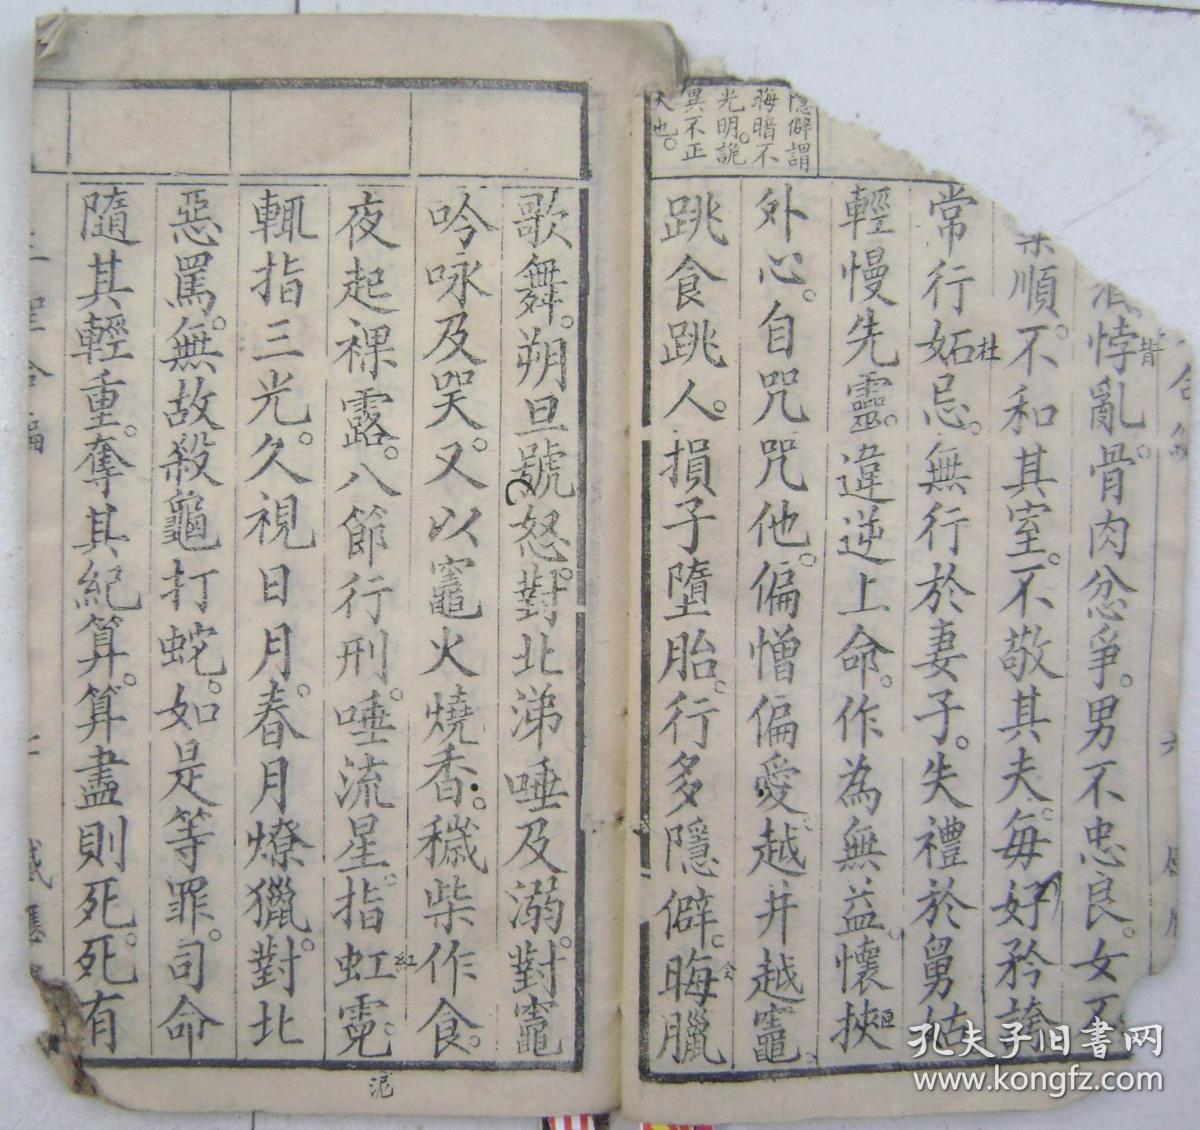 悖亂。骨肉忿爭。男不忠良。女不
順。不和其室。不敬其夫。每好矜誇
常行妬忌。無行於妻子。失禮於舅姑
輕慢先靈。違逆上命。作為無益。懷挾
外心。自咒咒他。偏憎偏愛。越井越竈。
跳食跳人。損子墮胎。行多隱僻。晦臘
隱僻謂
晦暗不
光明詭
異不正
大也。
歌舞。朔旦號怒。對北涕唾及溺。對竈
吟咏及哭。又以竈火燒香。穢柴作食。
夜起裸露。八節行刑。唾流星。指虹霓。
輒指三光。久視日月。春月燎獵。對北
惡罵。無故殺龜打蛇。如是等罪。司命
隨其輕重。奪其紀算。算盡則死。死有
杜
紅
孔夫子旧書网
www.kongfz.com